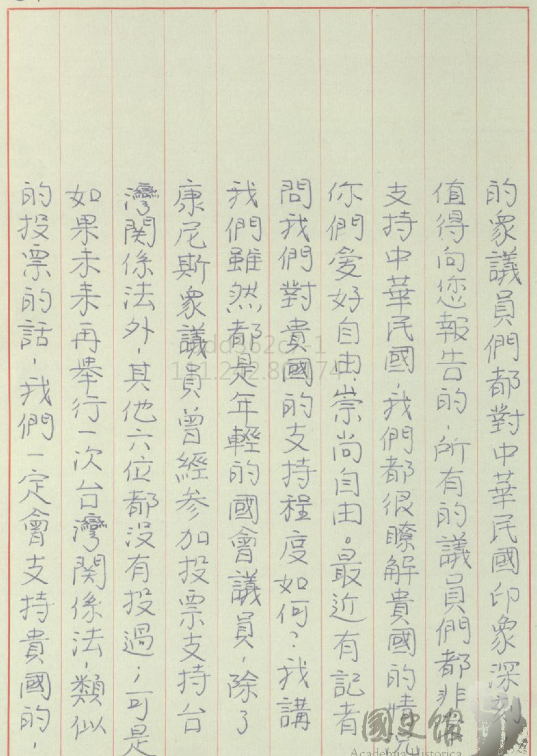 的衆議員們都對中華民國印象深
值得向您報告的，所有的議員們都非
支持中華民國，我們都很瞭解貴國的情
你們愛好自由，崇尚自由。最近有記者
問我們對貴國的支持程度如何？我講
我們雖然都是年輕的國會議員，除了
康尼斯衆議員曾經參加投票支持台
灣関係法外，其他六位都沒有投過；可是
如果未来再舉行一次台灣関係法，類似
的投票的話，我們一定會支持貴國的，
國史館
Academia Historica